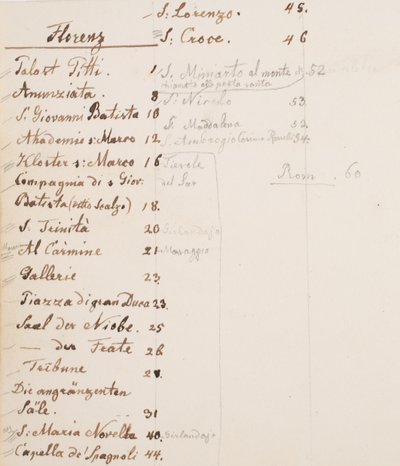 Florenz
Palast Pitti. 1
Anunziata. 8
S: Giovanni Batista 10
Akademie s: Marco 12
Kloster s: Marco 16
Compagnia di s Giov:
Batista (detto Scalzo) 18.
S. Trinità 20 Girlandajo
Al Càrmine 21 Masaggio
Gallerie 23.
Piazza di gran Duca 23.
Saal der Niobe. 25
— der Frate 26
Tribune
Die angränzenten
Säle. 31
S: Maria Novella 40. Girlandajo
Capella de' Spagnoli 44.
S: Lorenzo. 45.
S: Croce. 46
S. Miniarto al monte 52
S: Nicolo 53.
S. Maddalena 53.
S. Ambrogio Cosimo Roselli 54.
Fiesole
Rom 60